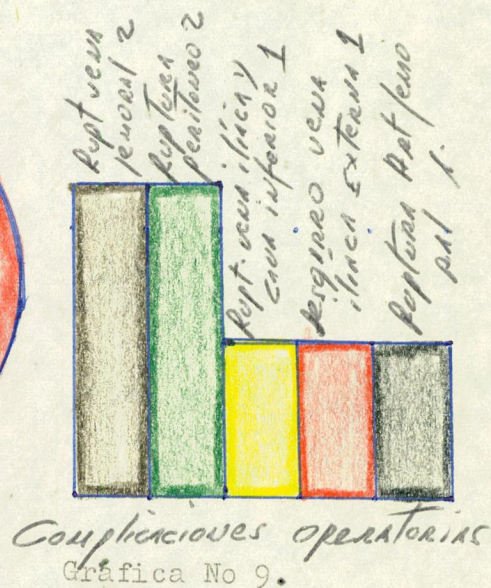 Rupt vena
femoral 2
Ruptura
peritoneo 2
Rupt. vena iliaca y
cava inferior 1
Desgarro vena
iliaca externa 1
Ruptura Art femo
ral 1.
Complicaciones operatorias
Gráfica No 9.